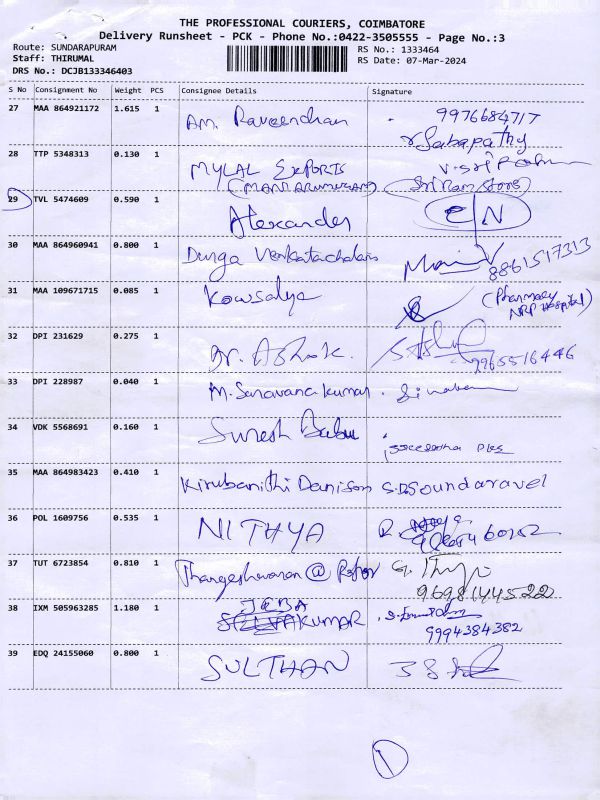 THE PROFESSIONAL COURIERS, COIMBATORE
Delivery Runsheet - PCK - Phone No.:0422-3505555 - Page No.:3
Route: SUNDARAPURAM
RS No.: 1333464
Staff: THIRUMAL
RS Date: 07-Mar-2024
DRS No.: DCJB133346403
S No Consignment No Weight PCS Consignee Details Signature
27 MAA 864921172 1.615 1 AM. Raveendran 9976684717
Sabapathy
28 TTP 5348313 0.130 1 MYLAL EXPORTS
(Sriram Store)
29 TVL 5474609 0.590 1 Alexander C/N
30 MAA 864960941 0.800 1 Durga Venkatachalam 8861517313
31 MAA 109671715 0.085 1 Kowsalya (Pharmacy
NRP Hospital)
32 DPI 231629 0.275 1 Dr. Ashok. 9965516446
33 DPI 228987 0.040 1 M. Saravanakumar.
34 VDK 5568691 0.160 1 Suresh Babu
35 MAA 864983423 0.410 1 Kirubanithi Danison S.D.Soundaravel
36 POL 1609756 0.535 1 NITHYA
37 TUT 6723854 0.810 1 Thangeshwaran @
38 IXM 505963285 1.180 1 JEBA KUMAR
9994384382
39 EDQ 24155060 0.800 1 SULTHAN
1